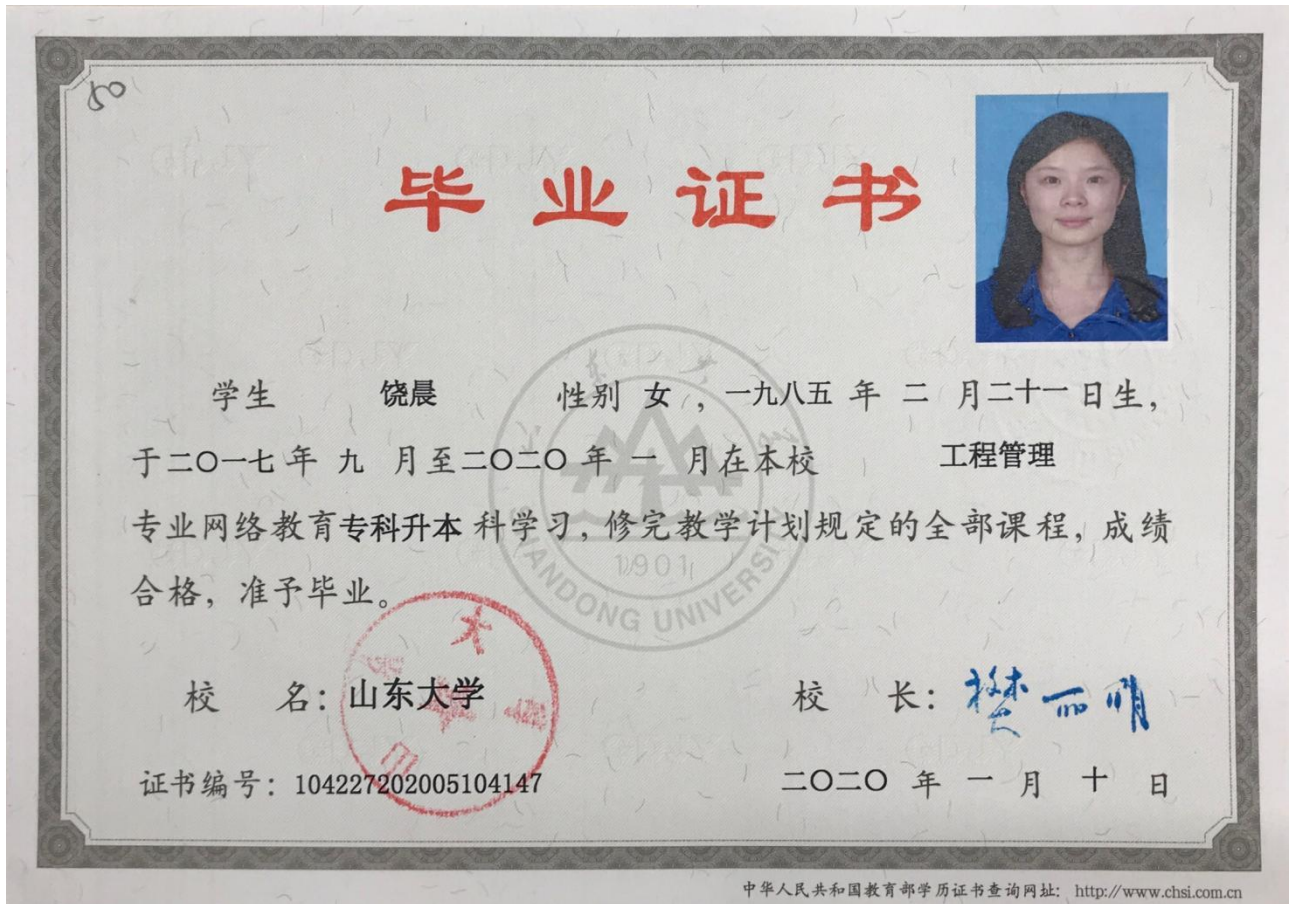 50
毕业证书
学生 饶晨 性别 女，一九八五 年 二 月二十一 日生，
于二〇一七 年 九 月至二〇二〇 年 一 月在本校 工程管理
专业网络教育专科升本 科学习，修完教学计划规定的全部课程，成绩
合格，准予毕业。
1901
SHANDONG UNIVERSITY
校 名：山东大学
校 长：樊丽明
证书编号：104227202005104147
二〇二〇 年 一 月 十 日
中华人民共和国教育部学历证书查询网址：http://www.chsi.com.cn